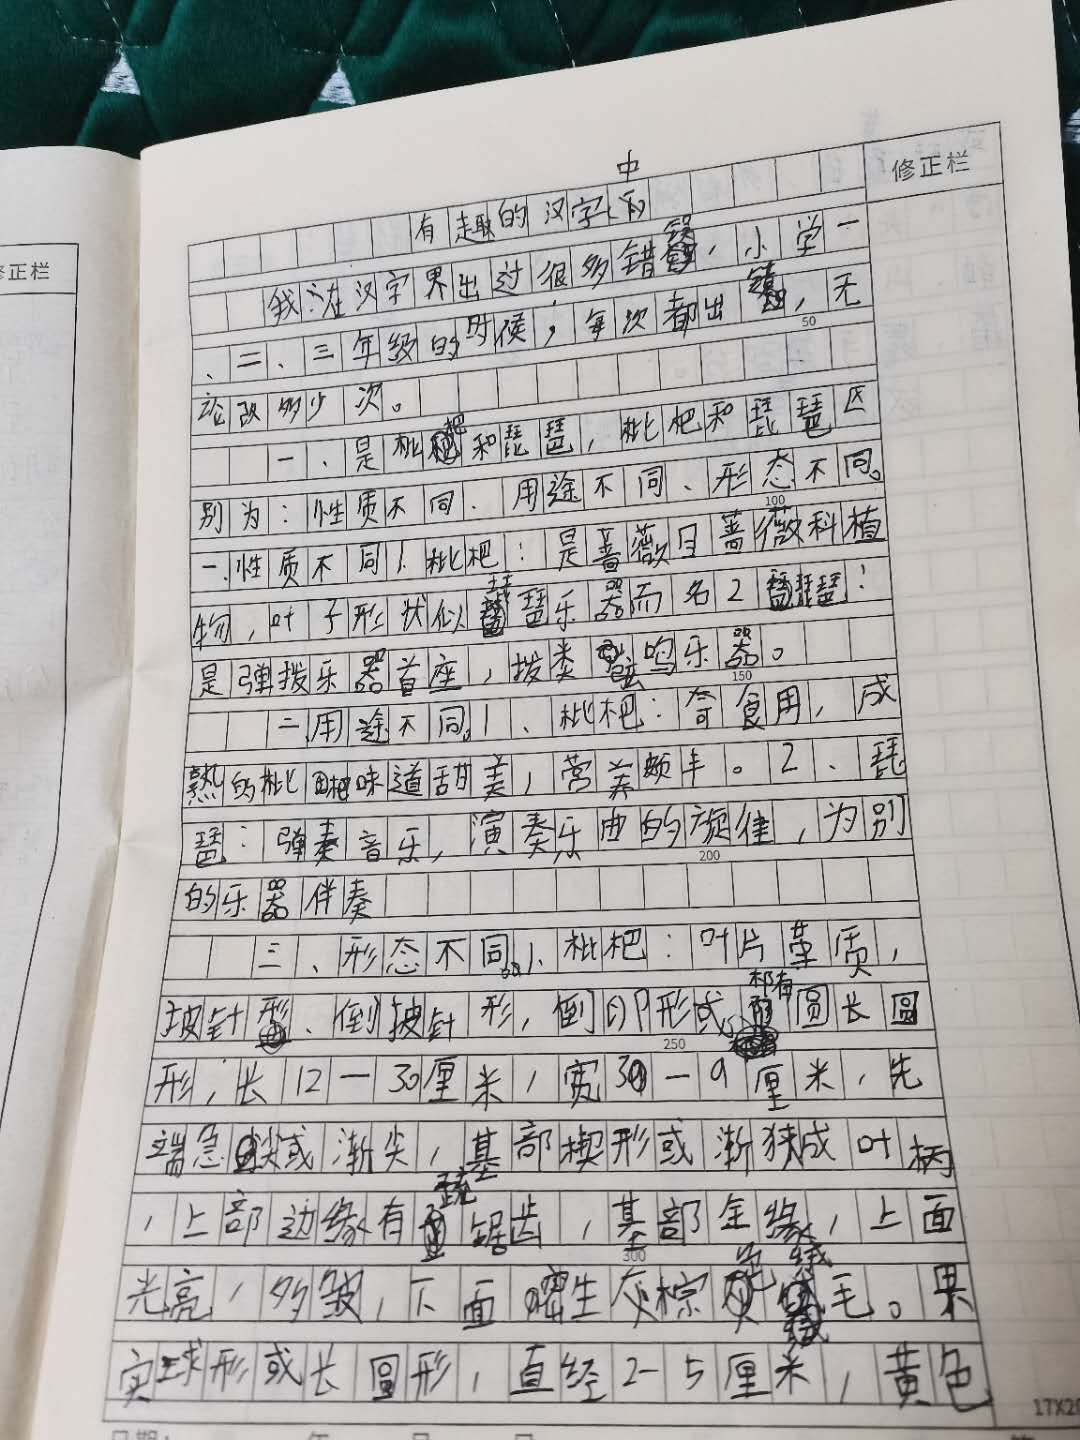 中
修正栏
修正栏
有趣的汉字(下)
我在汉字界出过很多错误，小学一
、二、三年级的时候，每次都出错，无
50
论改多少次。
一、是枇杷和琵琶，枇杷和琵琶区
别为：性质不同、用途不同、形态不同。
100
一.性质不同1.枇杷：是蔷薇目蔷薇科植
物，叶子形状似琵琶乐器而名2琵琶：
是弹拨乐器首座，拨类弦鸣乐器。
150
二.用途不同。1、枇杷：可食用，成
熟的枇杷味道甜美，营养颇丰。2、琵
琶：弹奏音乐，演奏乐曲的旋律，为别
200
的乐器伴奏
三、形态不同。1.枇杷：叶片革质，
披针形、倒披针形，倒卵形或椭圆长圆
250
形，长12一30厘米，宽3一9厘米，先
端急尖或渐尖，基部楔形或渐狭成叶柄
，上部边缘有疏锯齿，基部全缘，上面
300
光亮，多皱，下面密生灰棕色绒毛。果
实球形或长圆形，直经2-5厘米，黄色
17X20